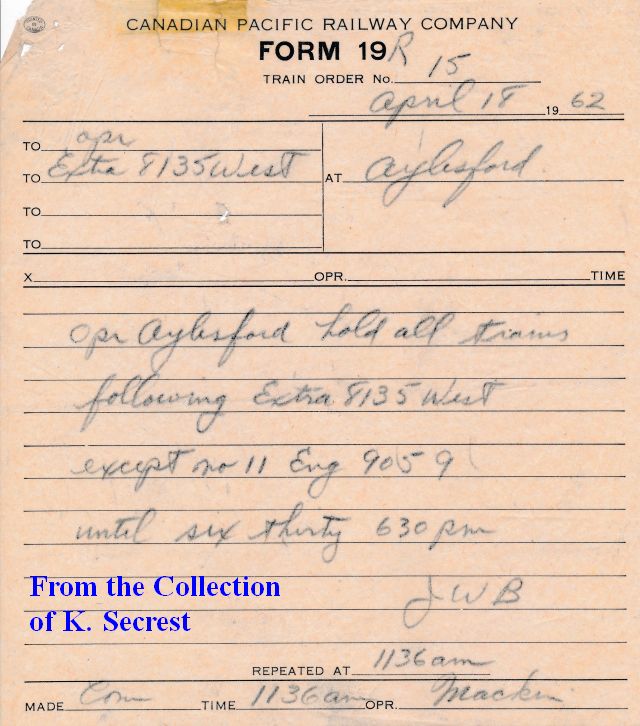 CANADIAN PACIFIC RAILWAY COMPANY
FORM 19R
TRAIN ORDER No. 15
April 18 1962
TO opr
TO Extra 8135 West AT Aylesford
TO
TO
X OPR. TIME
opr Aylesford hold all trains
following Extra 8135 West
except no 11 Eng 9059
until six thirty 630 pm
From the Collection
of K. Secrest
JWB
REPEATED AT 1136 am
MADE Com TIME 1136 am OPR. Mackin